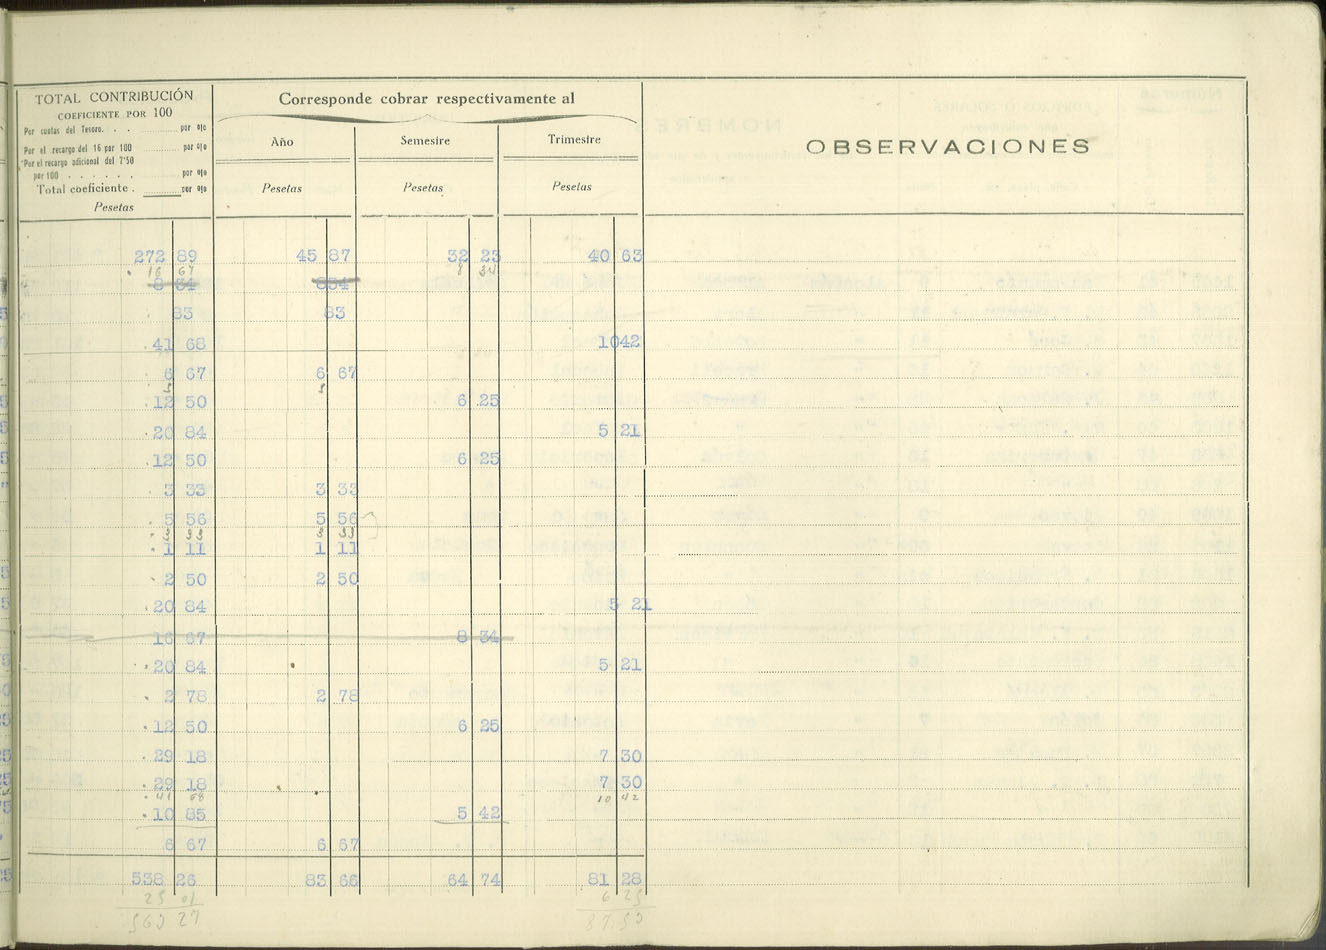 TOTAL CONTRIBUCIÓN
COEFICIENTE POR 100
Por cuotas del Tesoro. . . por o|o
Por el recargo del 16 por 100 por o|o
Por el recargo adicional del 7'50
por 100 . . . . . . por o|o
Total coeficiente . por o|o
Pesetas
Corresponde cobrar respectivamente al
Año Semestre Trimestre
Pesetas Pesetas Pesetas
OBSERVACIONES
272 89 45 87 32 23 40 63
16 67 8 34
8 34 834
83 83
41 68 1042
6 67 6 67
12 50 6 25
20 84 5 21
12 50 6 25
3 33 3 33
5 56 5 56
3 33 3 33
1 11 1 11
2 50 2 50
20 84 5 21
16 67 8 34
20 84 5 21
2 78 2 78
12 50 6 25
29 18 7 30
29 18 7 30
41 68 10 42
10 85 5 42
6 67 6 67
538 26 83 66 64 74 81 28
25 01 6 25
563 27 87.53